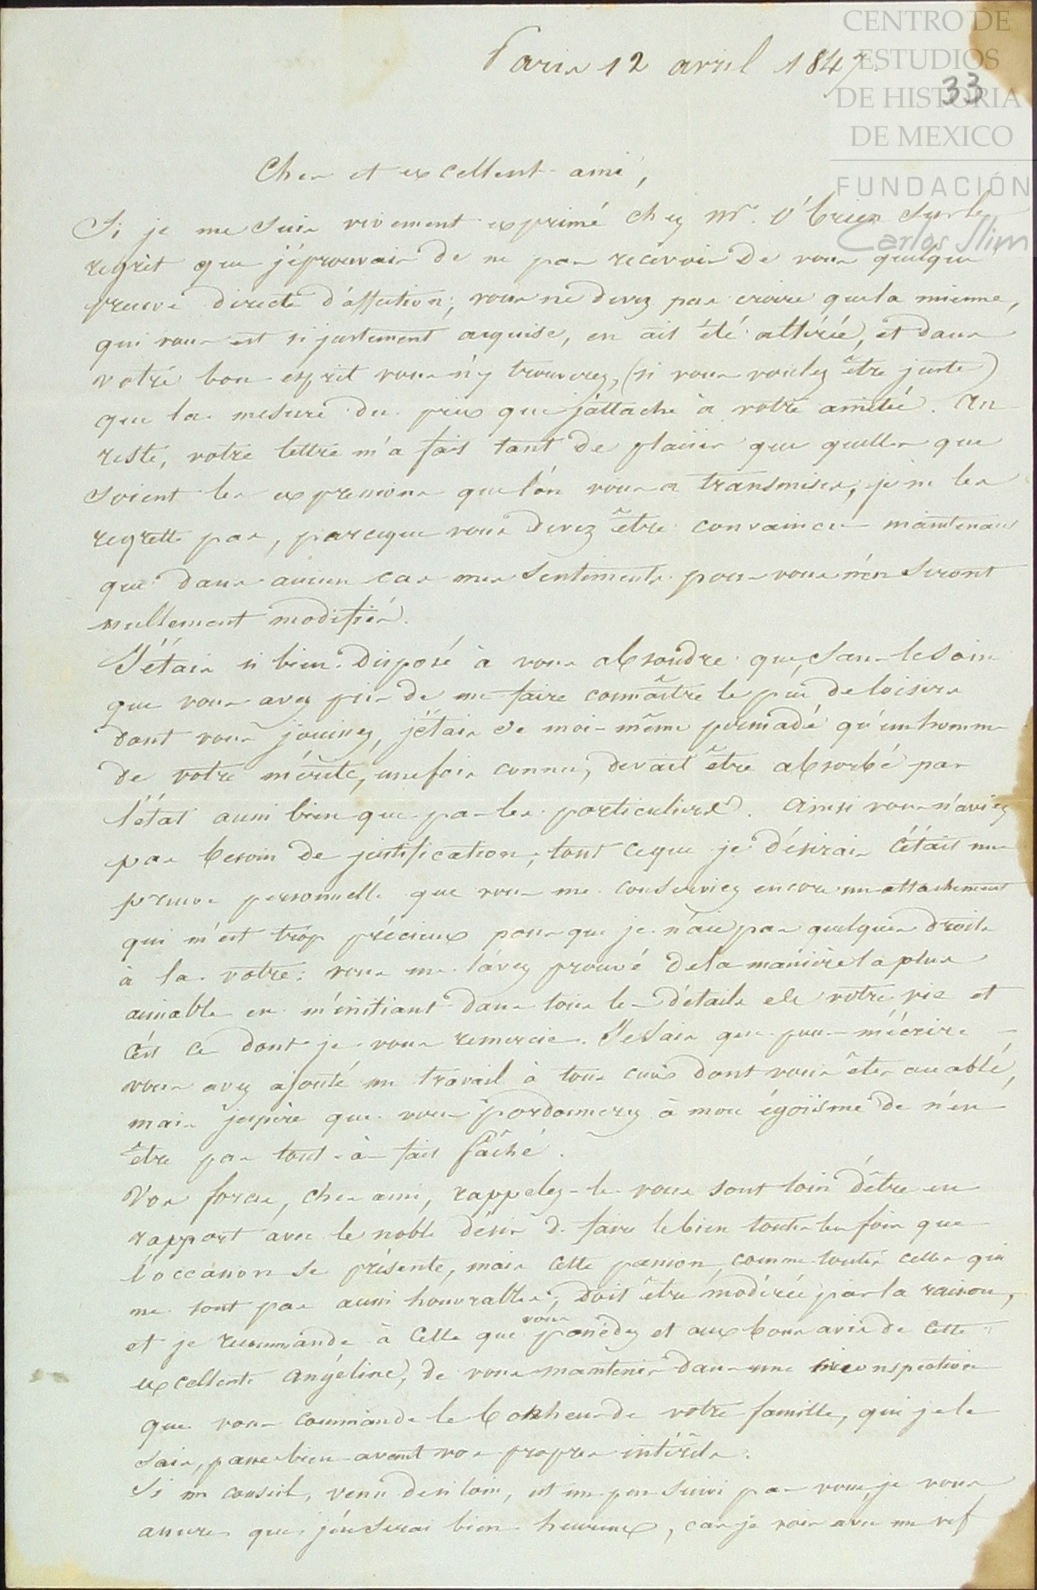 CENTRO DE
ESTUDIOS
DE HISTORIA
DE MEXICO
FUNDACIÓN
Carlos Slim
33
Paris 12 avril 1847.
Cher et excellent ami,
Si je me suis vivement exprimé chez Mr. O'Brien sur le
regret que j'éprouvais de ne pas recevoir de vous quelque
preuve directe d'affection, vous ne devez pas croire que la mienne,
qui vous est si justement acquise, en ait été altérée, et dans
votre bon esprit vous n'y trouverez, (si vous voulez être juste)
que la mesure du prix que j'attache à votre amitié. Au
reste, votre lettre m'a fait tant de plaisir que quelles que
soient les expressions que l'on vous a transmises, je ne les
regrette pas, parceque vous devez être convaincu maintenant
que dans aucun cas mes sentiments pour vous n'en seront
nullement modifiés.
J'étais si bien disposé à vous absoudre que, sans le soin
que vous avez pris de me faire connaître le peu de loisirs
dont vous jouissez, j'étais de moi-même persuadé qu'un homme
de votre mérite, une fois connu, devait être absorbé par
l'état aussi bien que par les particuliers. Ainsi vous n'aviez
pas besoin de justification, tout ce que je désirais c'était une
preuve personnelle que vous me conserviez encore un attachement
qui m'est trop précieux pour que je n'aie pas quelques droits
à la votre: vous me l'avez prouvé de la manière la plus
aimable en m'initiant dans tous les détails de votre vie et
c'est ce dont je vous remercie. Je sais que pour m'écrire
vous avez ajouté un travail à tous ceux dont vous êtes accablé,
mais j'espère que vous pardonnerez à mon égoïsme de n'en
être pas tout-à-fait fâché.
Vos forces, cher ami, rappelez-le vous sont loin d'être en
rapport avec le noble désir de faire le bien toutes les fois que
l'occasion se présente, mais cette passion, comme toutes celles qui
ne sont pas aussi honorables, doit être modérée par la raison,
et je recommande à celle que vous possédez et aux bons avis de cette
excellente Angéline, de vous maintenir dans une circonspection
que vous commande le bonheur de votre famille, qui je le
sais, passe bien avant vos propres intérêts.
Si un conseil, venu de si loin, est un peu suivi par vous, je vous
assure que j'en serai bien heureux, car je vois avec un vif